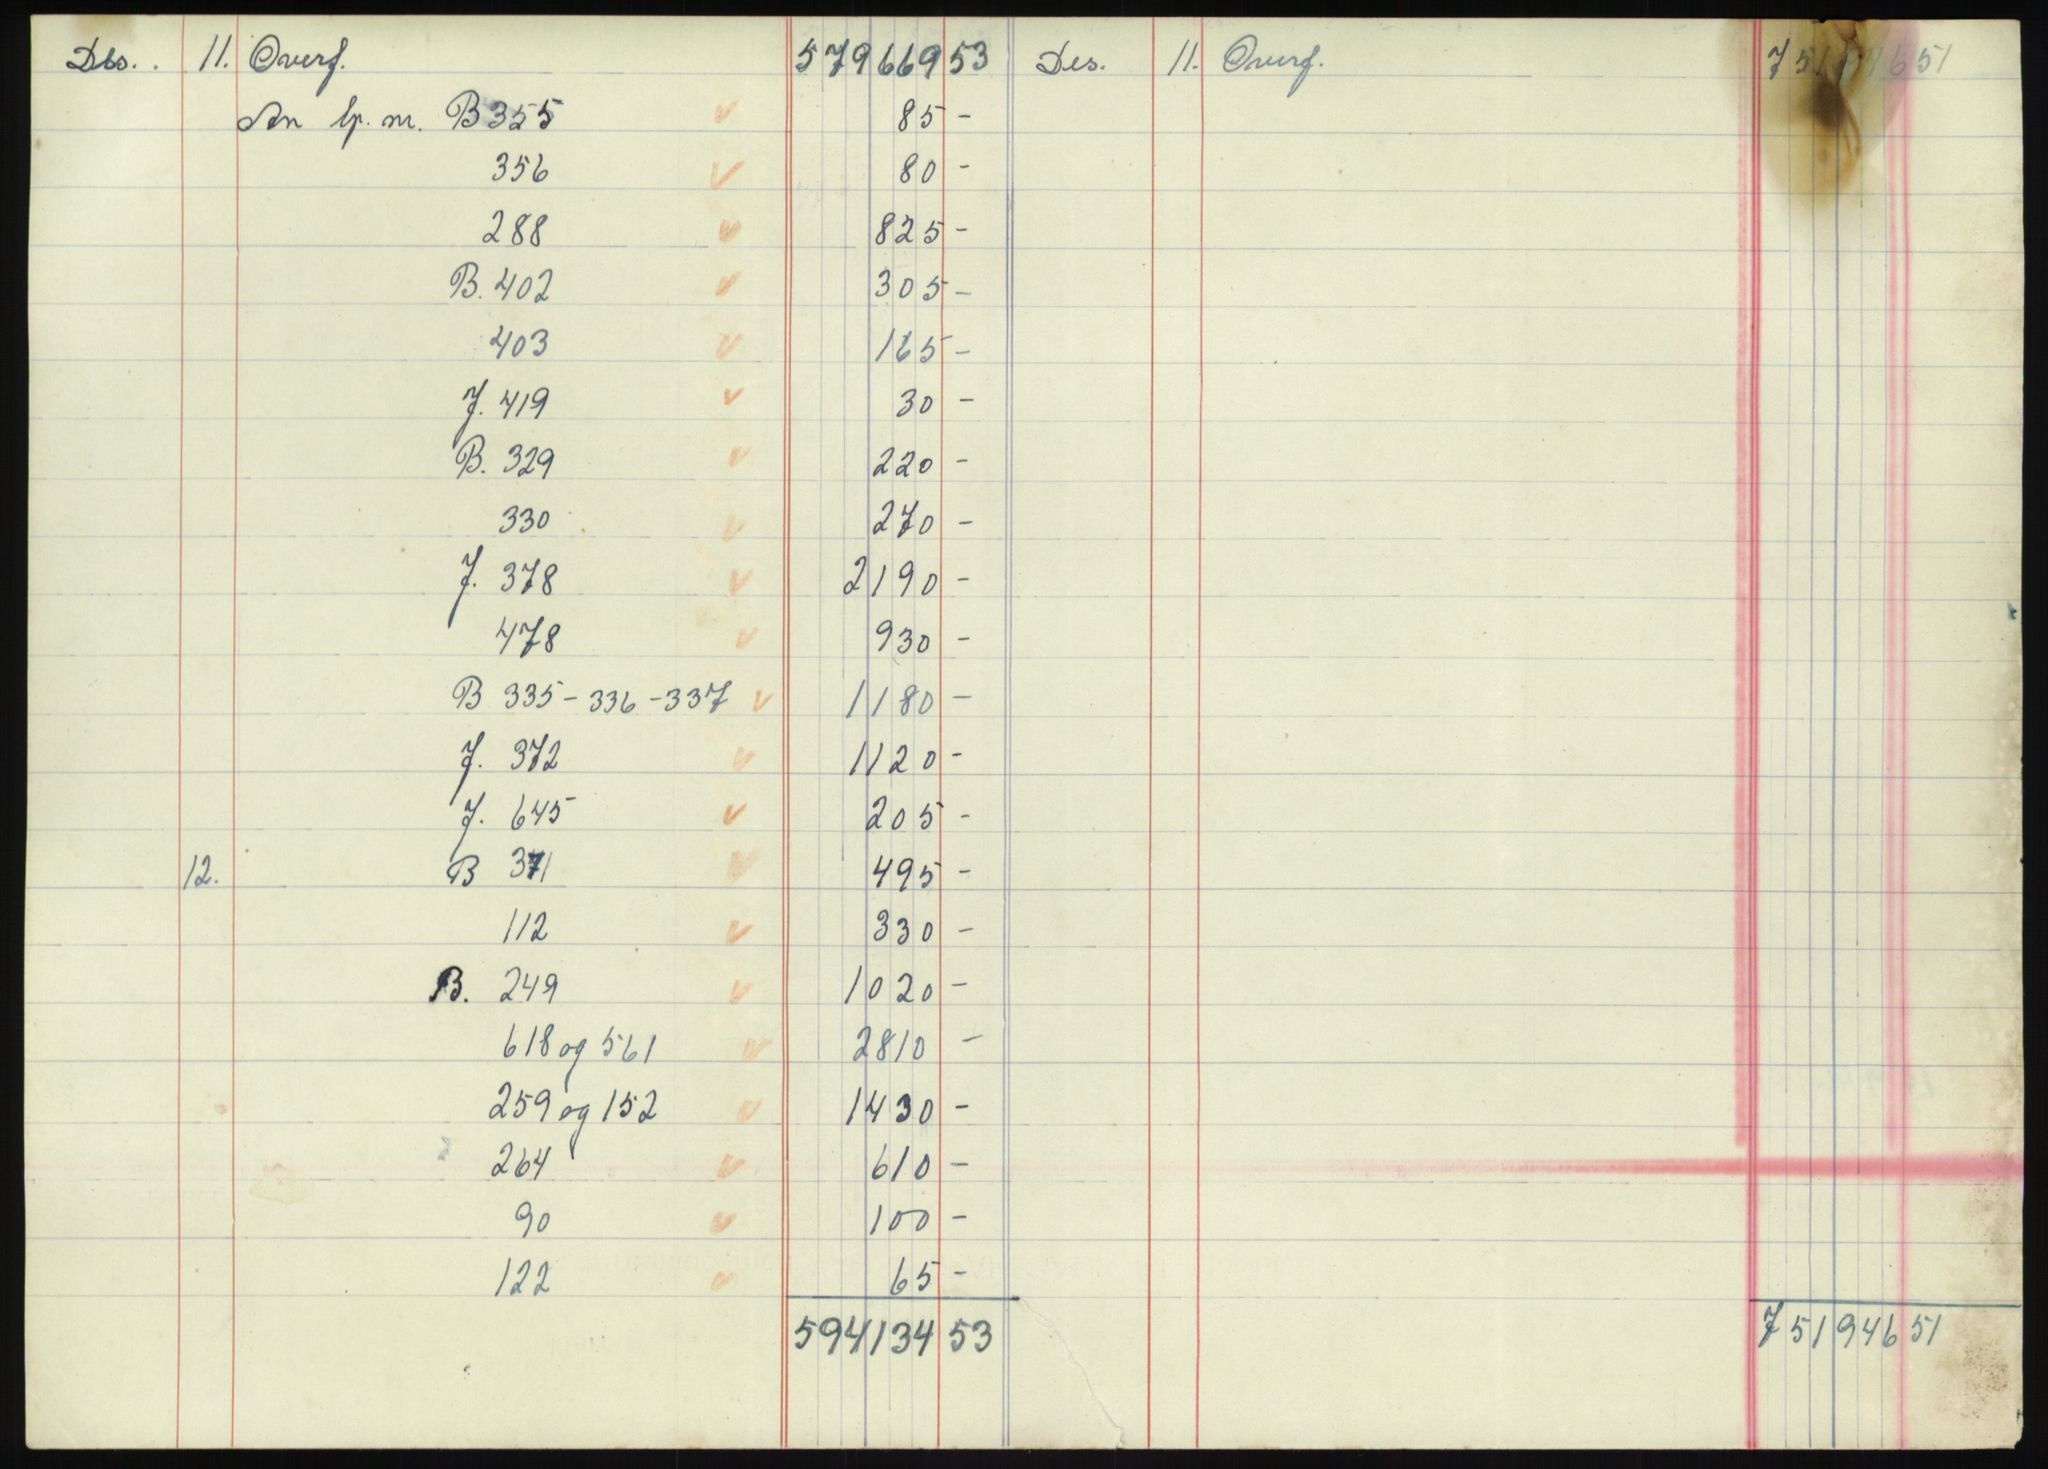 Des. 11. Overf. 579669 53
An lp. nr. B 355 85 -
356 80 -
288 825 -
B. 402 305 -
403 165 -
J. 419 30 -
B. 329 220 -
330 270 -
J. 378 2190 -
478 930 -
B 335 - 336 - 337 1180 -
J. 372 1120 -
J. 645 205 -
12. B 371 495 -
112 330 -
B. 249 1020 -
618 og 561 2810 -
259 og 152 1430 -
264 610 -
90 100 -
122 65 -
594134 53
Des. 11. Overf. 751946 51
751946 51